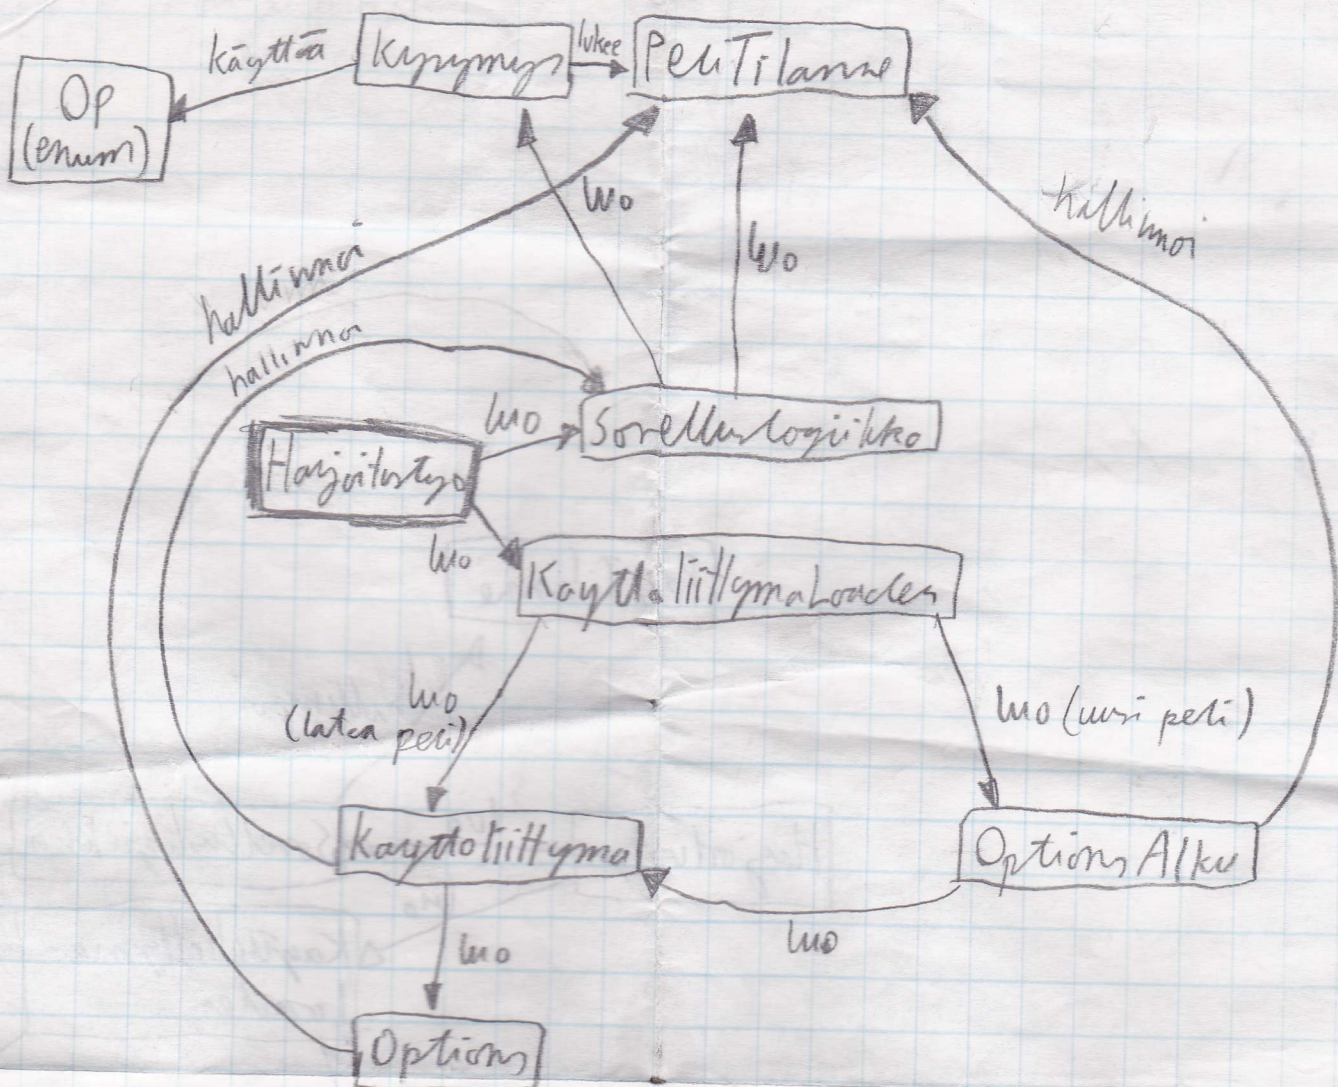 käyttää
Kysymys
lukee
PeliTilanne
Op
(enum)
luo
luo
hallinnoi
hallinnoi
hallinnoi
luo
Sovelluslogiikka
Harjoitustyo
luo
KayttoliittymaLoader
luo
(lataa
peli)
luo (uusi peli)
Kayttoliittyma
OptionsAlku
luo
luo
Options